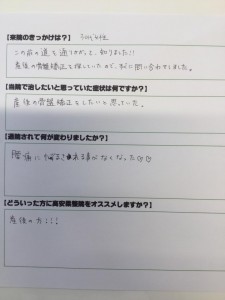 【来院のきっかけは?】 30代女性
この前の道を通りがかって、知りました!!
産後の骨盤矯正を探していたので、すぐに問い合わせしました。
【当院で治したいと思っていた症状は何ですか?】
産後の骨盤矯正をしたいと思っていた。
【通院されて何が変わりましたか?】
腰痛に悩まされる事がなくなった
【どういった方に高安柔整院をオススメしますか?】
産後の方!!!